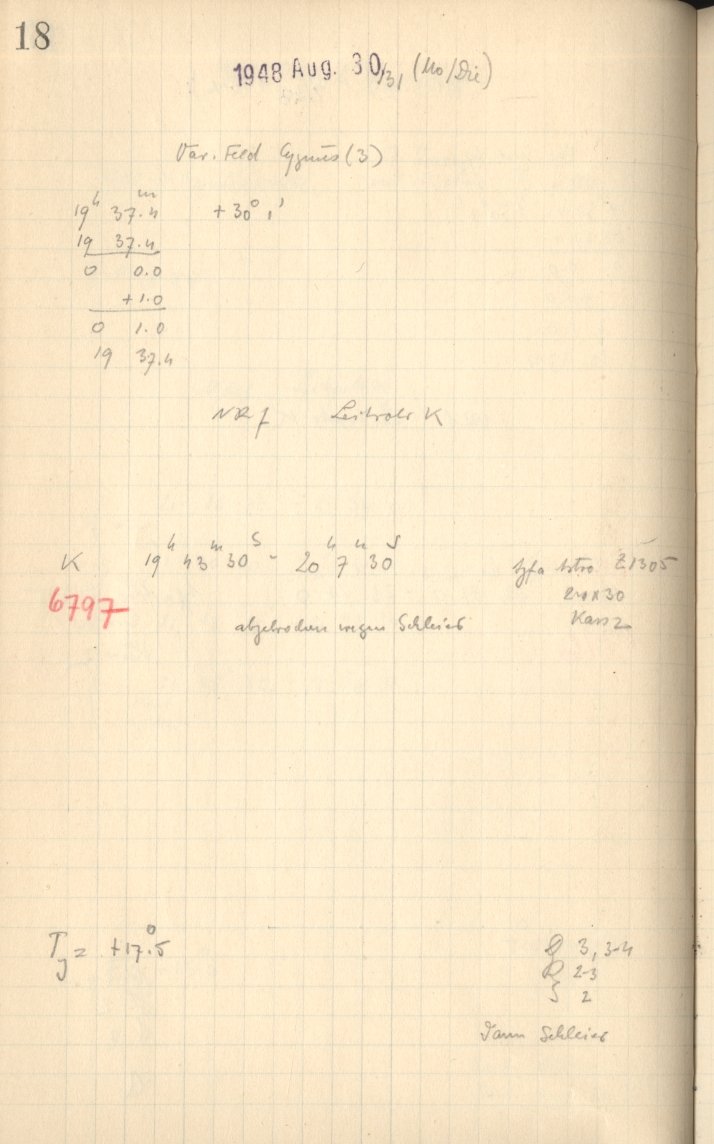 18
1948 Aug. 30/31 (Mo/Die)
Var. Feld Cygnus (3)
19h 37.4m +30° 1'
19 37.4
0 0.0
+1.0
0 1.0
19 37.4
Leitrohr K
K 19h 43m 30s - 20h 7m 30s Agfa Astro Z1305
6797 24x30
abgebrochen wegen Schleier Kass 2
T = +17.5°
3, 3-4
2-3
S 2
Dann Schleier